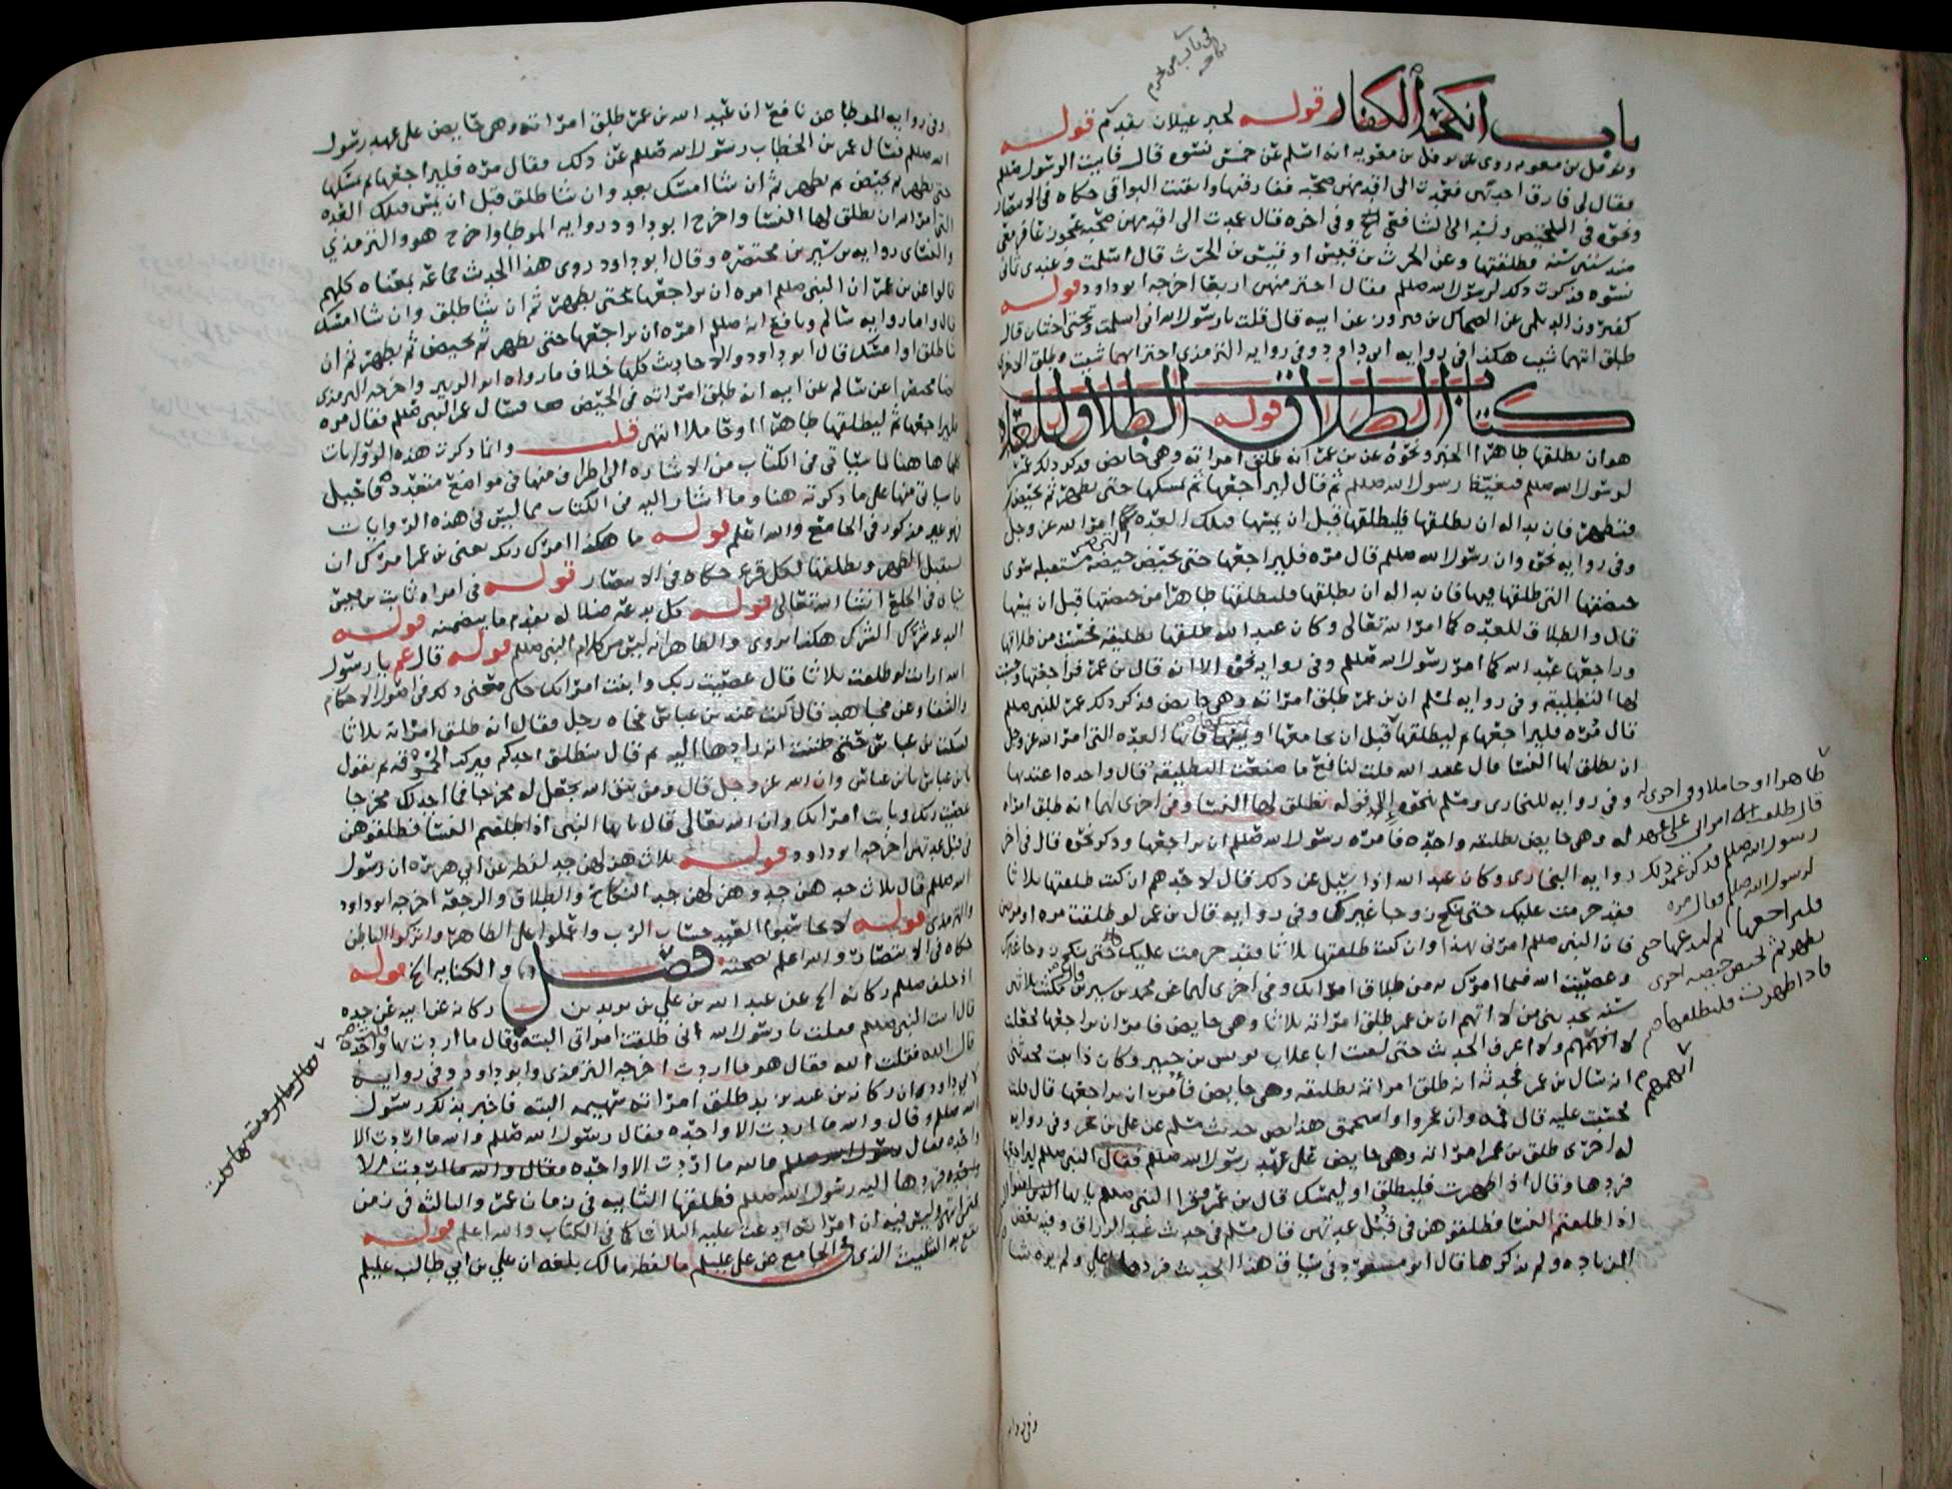 في باب من يحرم
نكاحه
باب أنكحة الكفار قوله لخبر غيلان تقدم قوله
ونوفل بن معويه روى عن نوفل بن معويه انه اسلم عن خمس نسوه قال فاتيت الرسول صللم
فقال لي فارق احديهن فعمدت الى اقدمهن صحبه ففارقتها وابقيت البواقي حكاه في الانتصار
ونحوه في التلخيص ونسبه الى الشافعي الخ وفي اخره قال عمدت الى اقدمهن صحبه عجوز عاقر معي
منذ ستين سنه فطلقتها وعن الحرث بن قيس او قيس بن الحرث قال اسلمت وعندي ثماني
نسوه فذكرت ذلك لرسول الله صللم فقال اختر منهن اربعا اخرجه ابو داود قوله
كفيروز الديلمي عن الضحاك بن فيروز عن ابيه قال قلت يا رسول الله اني اسلمت وتحتي اختان قال
طلق ايتهما شيت هكذا في روايه ابي داود وفي روايه الترمذي اختر ايهما شيت وطلق الاخرى
كتاب الطلاق قوله الطلاق للعده
هو ان يطلقها طاهرا الخبر ونحوه عن بن عمر انه طلق امراته وهي حايض فذكر ذلك عمر
لرسول الله صللم فتغيظ رسول الله صللم ثم قال ليراجعها ثم يمسكها حتى تطهر ثم تحيض
فتطهر فان بدا له ان يطلقها فليطلقها قبل ان يمسها فتلك العده كما امر الله عز وجل
وفي روايه نحوه وان رسول الله صللم قال مره فليراجعها حتى تحيض حيضه مستقبله سوى
حيضتها التي طلقها فيها فان بدا له ان يطلقها فليطلقها طاهرا من حيضتها قبل ان يمسها
قال والطلاق للعده كما امر الله تعالى وكان عبد الله طلقها تطليقه فحسبت من طلاقها
وراجعها عبد الله كما امر رسول الله صللم وفي روايه نحوه الا انه قال بن عمر فراجعتها وحسبت
لها التطليقة وفي روايه لمسلم ان بن عمر طلق امراته وهي حايض فذكر ذلك عمر للنبي صللم
قال مره فليراجعها ثم ليطلقها قبل ان يجامعها او يمسها فانها العده التي امر الله عز وجل
ان يطلق لها النسا قال عبيد الله قلت لنافع ما صنعت التطليقه قال واحده اعتد بها
وفي روايه للبخاري ومسلم نحوه الى قوله يطلق لها النسا وفي اخرى لهما انه طلق امراه
له وهي حايض تطليقه واحده فامره رسول الله صللم ان يراجعها وذكر نحوه قال في اخر
روايه البخاري وكان عبد الله اذا سيل عن ذلك قال لاحدهم ان كنت طلقتها ثلاثا
فقد حرمت عليك حتى تنكح زوجا غيرك وفي روايه قال بن عمر لو طلقت مره او مرتين
فان النبي صللم امرني بهذا وان كنت طلقتها ثلاثا فقد حرمت عليك حتى تنكح زوجا غيرك
وعصيت الله فيما امرك به من طلاق امراتك وفي اخرى لهما عن محمد بن سيرين قال مكثت عشرين
سنه يحدثني من لا اتهم ان بن عمر طلق امراته ثلاثا وهي حايض فامر ان يراجعها فجعلت
لا اتهمهم ولا اعرف الحديث حتى لقيت ابا غلاب يونس بن جبير وكان ذا ثبت فحدثني
انه سال بن عمر فحدثه انه طلق امراته تطليقه وهي حايض فأُمِر ان يراجعها قال قلت
فحسبت عليه قال فمه وان عجز او استحمق هذا نص حديث مسلم عن علي بن حجر وفي روايه
له اخرى طلق بن عمر امراته وهي حايض على عهد رسول الله صللم فقال النبي صللم ليراجعها
فردها وقال اذا طهرت فليطلق او ليمسك قال بن عمر فقرا النبي صللم يا ايها النبي
اذا طلقتم النسا فطلقوهن في قُبُل عدتهن قال مسلم في حديث عبد الرزاق وفيه بعض
الزياده ولم يذكرها قال ابو مسعود في سياق هذا الحديث فردها علي ولم يره شيا
طاهرا او حاملا وفي اخرى له
قال طلقت امراتي على عهد
رسول الله صللم فذكر عمر ذلك
لرسول الله صللم فقال مره
فليراجعها ثم ليدعها حتى
تطهر ثم تحيض حيضه اخرى
فاذا طهرت فليطلقها
وفي روايه
وفي روايه الموطا عن نافع ان عبد الله بن عمر طلق امراته وهي حايض على عهد رسول
الله صللم فسال عمر بن الخطاب رسول الله صللم عن ذلك فقال مره فليراجعها ثم يمسكها
حتى تطهر ثم تحيض ثم تطهر ثم ان شا امسك بعد وان شا طلق قبل ان يمس فتلك العده
التي امر الله ان يطلق لها النسا واخرج ابو داود روايه الموطا واخرج هو والترمذي
والنسائي روايه بن سيرين مختصره وقال ابو داود روى هذا الحديث جماعه بمعناه كلهم
قالوا عن بن عمر ان النبي صللم امره ان يراجعها حتى تطهر ثم ان شا طلق وان شا امسك
قال واما روايه سالم ونافع ان صللم امره ان يراجعها حتى تطهر ثم تحيض ثم تطهر ثم ان
شا طلق او امسك قال ابو داود والاحاديث كلها خلاف ما رواه ابو الزبير واخرجه الترمذي
ايضا مختصرا عن سالم عن ابيه انه طلق امراته في الحيض فسال عمر النبي صللم فقال مره
فليراجعها ثم ليطلقها طاهرا او حاملا انتهى قلت وانما ذكرت هذه الروايات
كلها هاهنا لما سياتي في الكتاب من الاشاره الى اطراف منها في مواضع متعدده فاحيل
ما سياتي منها على ما ذكرته هنا وما اشار اليه في الكتاب مما ليس في هذه الروايات
فهو غير مذكور في الجامع والله اعلم قوله ما هكذا امرك ربك يعني بن عمر امرك ان
تستقبل الطهر وتطلقها لكل قرء حكاه في الانتصار قوله في امراه ثابت بن قيس
ياتي في الخلع انشا الله تعالى قوله كل بدعه ضلاله تقدم ما يتضمنه قوله
البدعه شرك الشرك هكذا روي والظاهر انه ليس من كلام النبي صللم قوله قال عمر يا رسول
الله ارايت لو طلقت ثلاثا قال عصيت ربك وابنت امراتك حكى معنى ذلك في اصول الاحكام
والشفا وعن مجاهد قال كنت عند بن عباس فجاه رجل فقال انه طلق امراته ثلاثا
فسكت بن عباس حتى ظننت انه رادها اليه ثم قال ينطلق احدكم فيركب الحموقه ثم يقول
يا بن عباس يا بن عباس وان الله عز وجل قال ومن يتق الله يجعل له مخرجا فما اجد لك مخرجا
عصيت ربك وبانت امراتك وان الله تعالى قال يا ايها النبي اذا طلقتم النسا فطلقوهن
في قبل عدتهن اخرجه ابو داود قوله ثلاث هزلهن جد لفظه عن ابي هريره ان رسول
الله صللم قال ثلاث جدهن جد وهزلهن جد النكاح والطلاق والرجعه اخرجه ابو داود
والترمذي قوله لا تحاسبوا العبد حساب الرب واعملوا على الظاهر واتركوا الباطن
حكاه في الانتصار والله اعلم بصحته فصل والكنايه الخ قوله
اذ حلف صللم ركانه الخ عن عبد الله بن علي بن يزيد بن ركانه عن ابيه عن جده
قال اتيت النبي صللم فقلت يا رسول الله اني طلقت امراتي البته فقال ما اردت بها قلت واحده
قال الله فقلت الله فقال هو ما اردت اخرجه الترمذي وابو داود وفي روايه
لابي داود ان ركانه بن عبد يزيد طلق امراته سهيمه البته فاخبر بذلك رسول
الله صللم وقال والله ما اردت الا واحده فقال رسول الله صللم والله ما اردت الا
واحده فقال ركانه والله ما اردت الا واحده
فردها اليه رسول الله صللم فطلقها الثانيه في زمان عمر والثالثه في زمن
عثمن انتهى وليس فيه ان امراته ادعت عليه الثلاث كما في الكتاب والله اعلم قوله
الذي في الجامع عن علي عليلم ما لفظه مالك بلغه ان علي بن ابي طالب عليلم